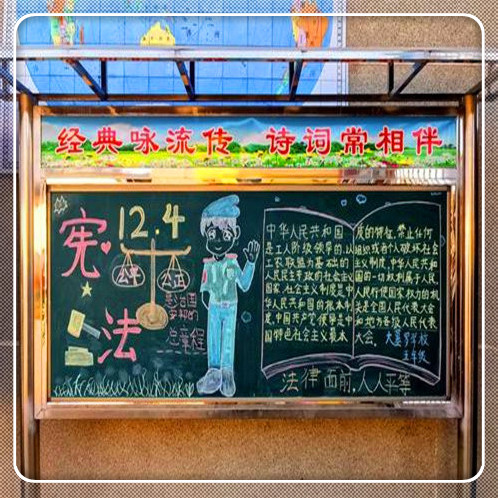 经典咏流传 诗词常相伴
12.4
宪
法
公平
公正
总章程
中华人民共和国
是工人阶级领导的,以
工农联盟为基础的
人民民主专政的社会主义
国家。社会主义制度是中
华人民共和国的根本制
度。中国共产党领导是中
国特色社会主义最本
质的特征。禁止任何
组织或者个人破坏社会
主义制度。中华人民共和
国的一切权利属于人民。
人民行使国家权力的机
关是全国人民代表大会
和地方各级人民代表
大会。
五年级
法律面前,人人平等